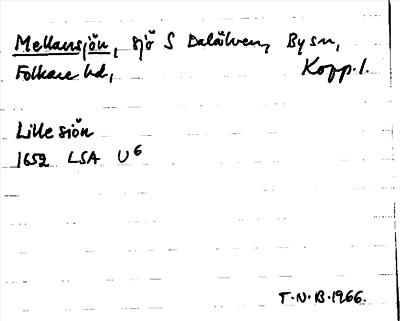 Mellansjön, sjö S Dalälven, By sn,
Folkare hd, Kopp. l.
Lille siön
1652 LSA U6
T.N.B. 1966.